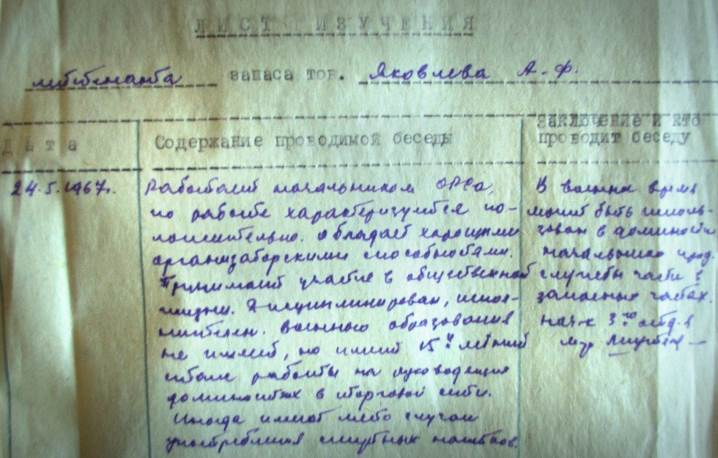 ЛИСТ ИЗУЧЕНИЯ
лейтенанта запаса тов. Яковлева А.Ф.
Дата
Содержание проводимой беседы
Заключение и кто
проводит беседу
24.5.1967г.
Работает начальником ОРСа,
по работе характеризуется по-
ложительно. Обладает хорошими
организаторскими способностями.
Принимает участие в общественной
жизни. Дисциплинирован, испол-
нителен. Военного образования
не имеет, но имеет 15-и летний
стаж работы на руководящих
должностях в торговой сети.
Иногда имеют место случаи
употребления спиртных напитков.
В военное время
может быть исполь-
зован в должности
начальника прод.
службы части в
запасных частях.
нач-к 3го отд-я
м-р